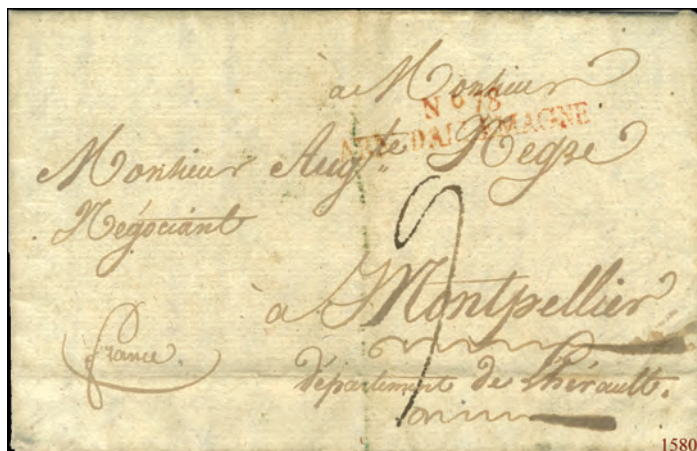 à Monsieur
No 78
ARM. D'ALLEMAGNE
Monsieur Augte Negre
Négociant
à Montpellier
france
département de Lhérault.
1580